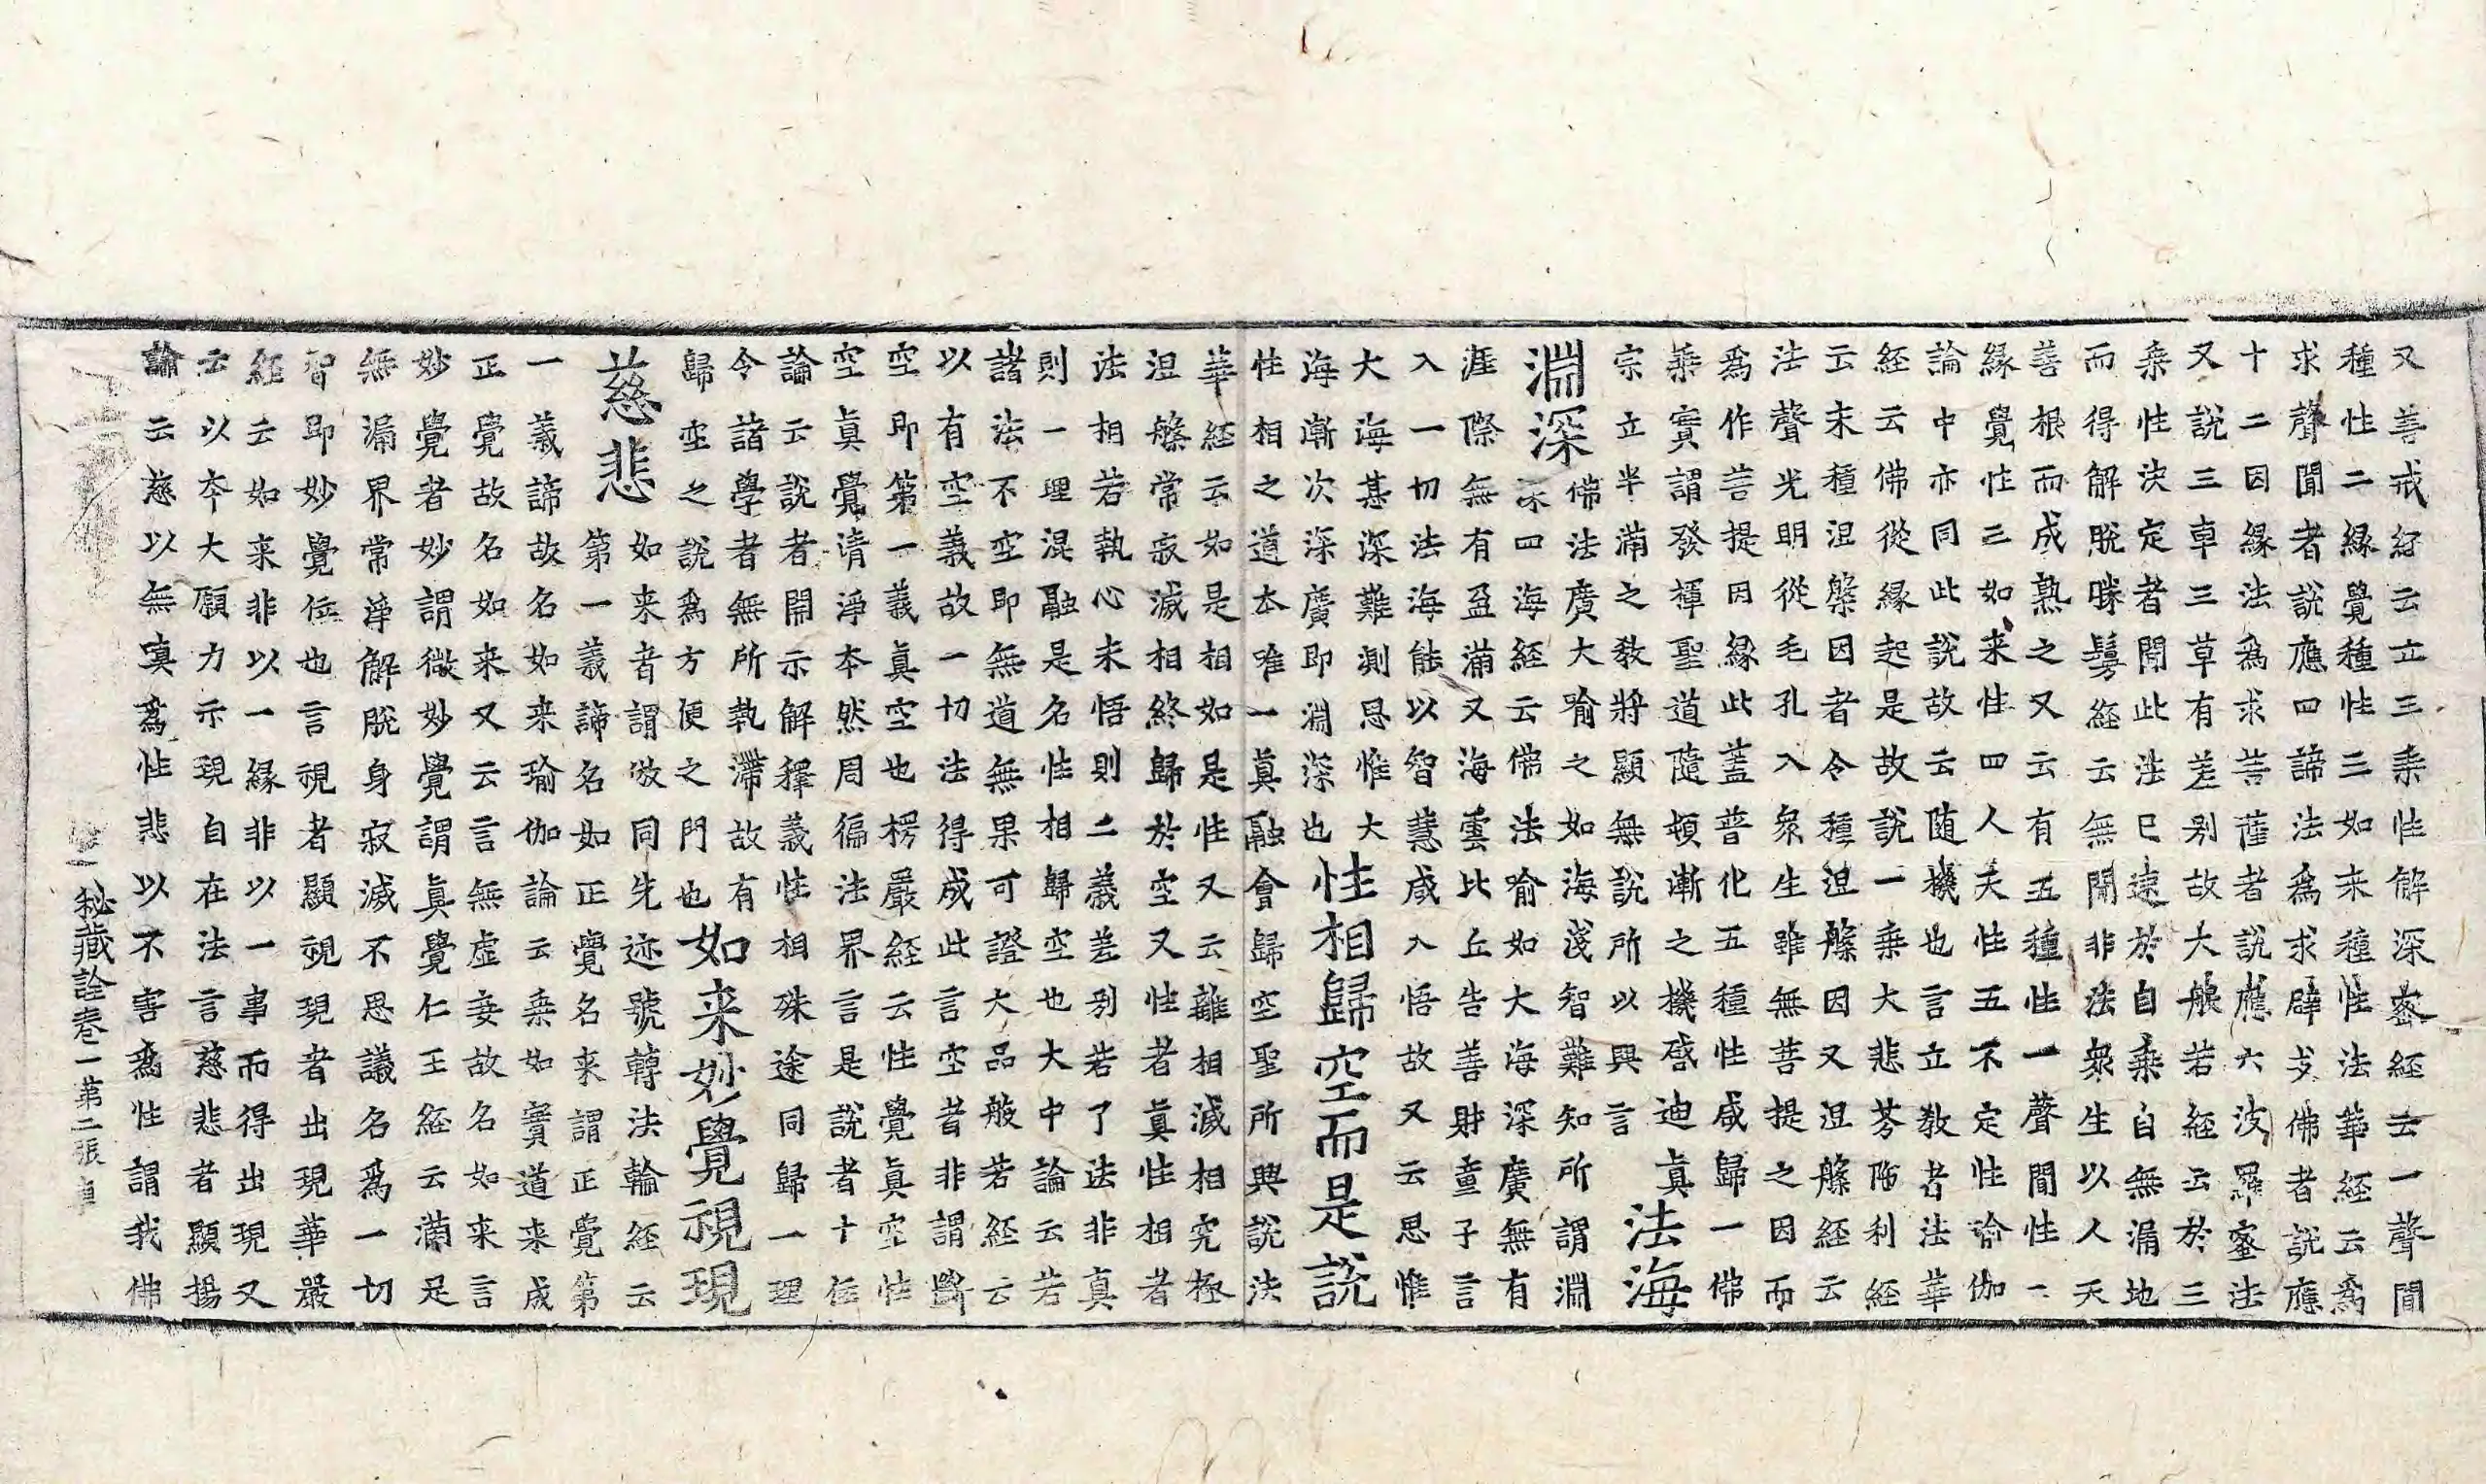 又善戒経云立三乗性解深密経云一聲聞
種性二緣覺種性三如来種性法華経云爲
求聲聞者說應四諦法爲求辟支佛者說應
十二因緣法爲求菩薩者說應六波羅蜜法
又說三車三草有差别故大般若経云於三
乗性決定者聞此法已速於自乗自無漏地
而得解脫勝鬘経云無聞非法衆生以人天
善根而成熟之又云有五種性一聲聞性二
緣覺性三如来性四人天性五不定性瑜伽
論中亦同此說故云随機也言立教者法華
経云佛從緣起是故說一乗大悲芬陁利経
云未種涅槃因者令種涅槃因又涅槃経云
法聲光明從毛孔入衆生雖無菩提之因而
爲作菩提因緣此蓋普化五種性咸歸一佛
乗實謂發揮聖道隨頓漸之機啓迪真
宗立半滿之教將顯無說所以興言
法海
淵深
佛法廣大喻之如海淺智難知所謂淵
深四海経云佛法喻如大海深廣無有
涯際無有盈滿又海雲比丘告善財童子言
入一切法海能以智慧咸入悟故又云思惟
大海甚深難測思惟大
海漸次深廣即淵深也
性相歸空而是說
性相之道本唯一真融會歸空聖所興說法
華経云如是相如是性又云離相滅相究極
涅槃常寂滅相終歸於空又性者真性相者
法相若執心未悟則二義差别若了法非真
則一理混融是名性相歸空也大中論云若
諸法不空即無道無果可證大品般若経云
以有空義故一切法得成此言空者非謂斷
空即第一義真空也楞嚴経云性覺真空性
空真覺清淨本然周徧法界言是說者十住
論云說者開示解釋義性相殊途同歸一理
令諸學者無所執滯故有
歸空之說爲方便之門也
如来妙覺視現
慈悲
如来者謂倣同先迹號轉法輪経云
第一義諦名如正覺名来謂正覺第
一義諦故名如来瑜伽論云乗如實道来成
正覺故名如来又云言無虛妄故名如来言
妙覺者妙謂微妙覺謂真覺仁王経云滿足
無漏界常淨解脫身寂滅不思議名爲一切
智即妙覺位也言視者顯視現者出現華嚴
経云如来非以一緣非以一事而得出現又
云以本大願力示現自在法言慈悲者顯揚
論云慈以無嗔爲性悲以不害爲性謂我佛
秘藏詮卷一第二張